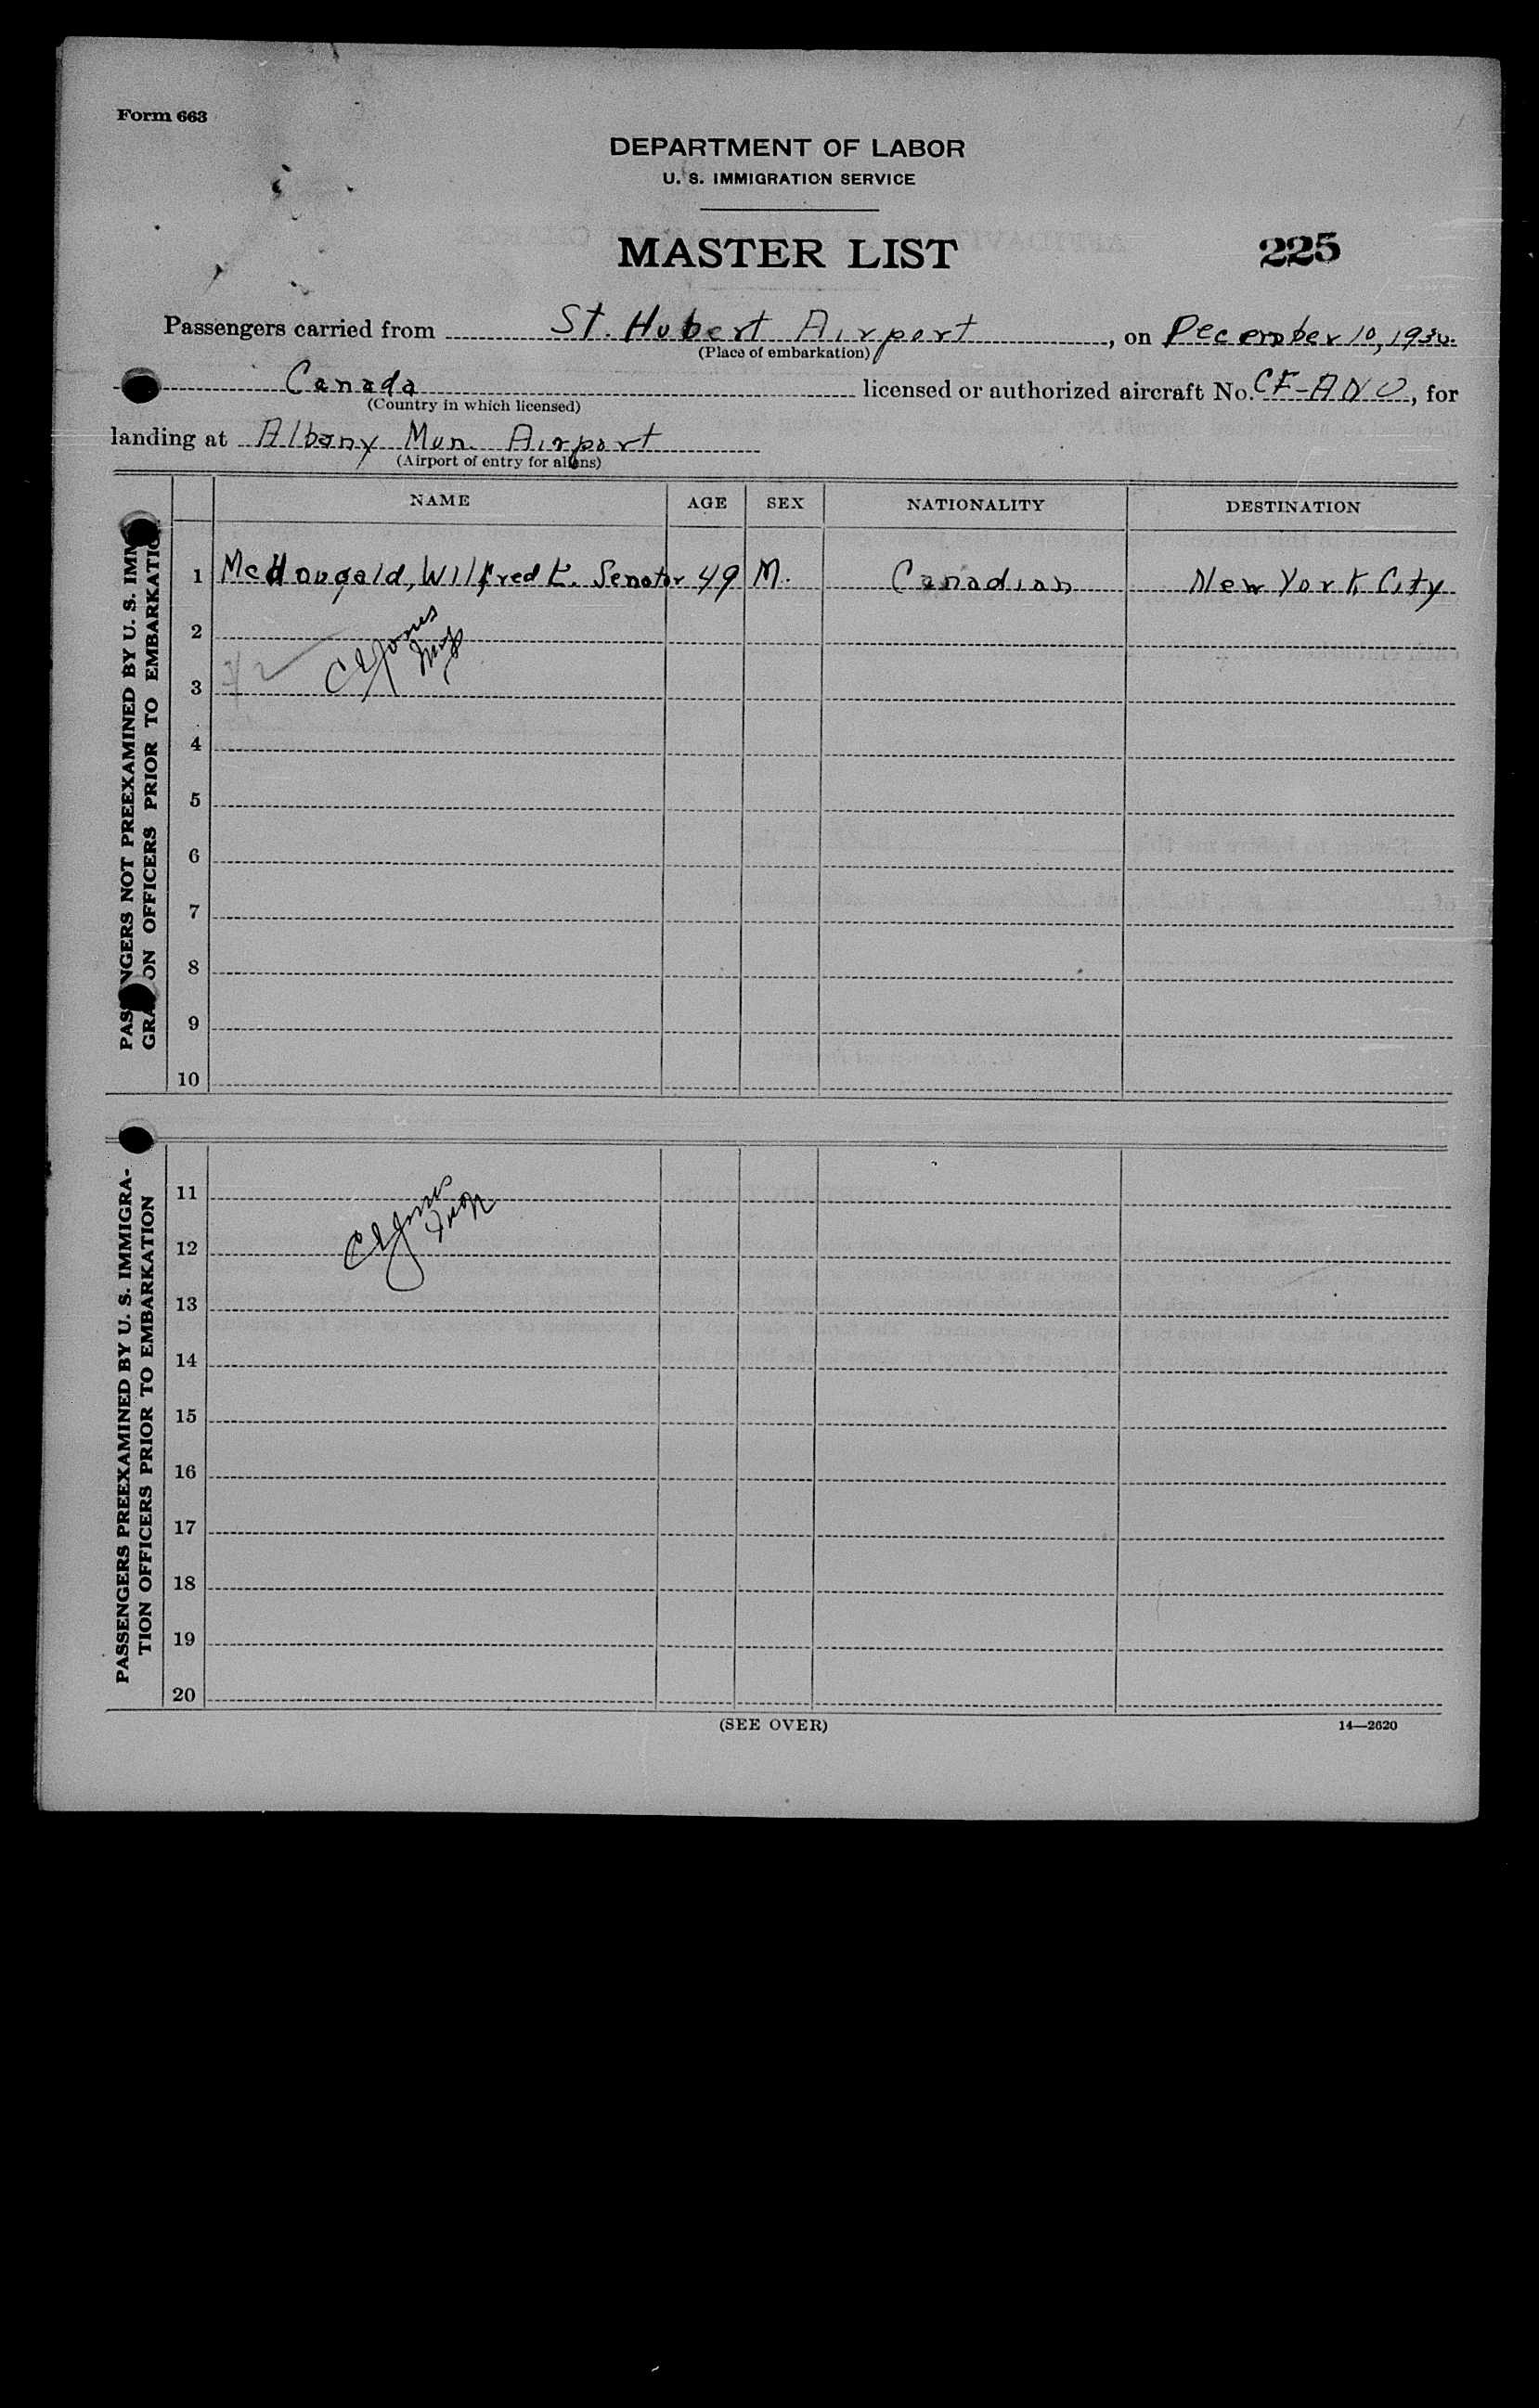 Form 663
DEPARTMENT OF LABOR
U. S. IMMIGRATION SERVICE
MASTER LIST 225
Passengers carried from St. Hubert Airport, on December 10, 1930.
(Place of embarkation)
Canada licensed or authorized aircraft No. CF-ANO, for
(Country in which licensed)
landing at Albany Mun. Airport
(Airport of entry for aliens)
NAME AGE SEX NATIONALITY DESTINATION
PASSENGERS NOT PREEXAMINED BY U. S. IMMI
GRATION OFFICERS PRIOR TO EMBARKATION
1 McDougald, Wilfred L. Senator 49 M. Canadian New York City
2
C E Jones
3
4
5
6
7
8
9
10
PASSENGERS PREEXAMINED BY U. S. IMMIGRA-
TION OFFICERS PRIOR TO EMBARKATION
11
C E Jones
12
13
14
15
16
17
18
19
20
(SEE OVER) 14—2620